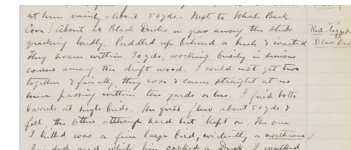 at him vainly - About 50 yds. - Next to Whale Back
Cove. About 25 Black Ducks in grass among the sticks
quacking loudly. Paddled up behind a bush & waited
They swam within 80 yds, working briskly in
coming among the drift wood. I could not get two
together & finally they rose & came straight at us
some passing within ten yards or less. I fired both
barrels at single birds. The first flew about 50 yds &
fell, the other although hard hit kept on. The one
I killed was a fine large bird, evidently a northern
Red-legged
Black Duck
and while him a Duck I walked